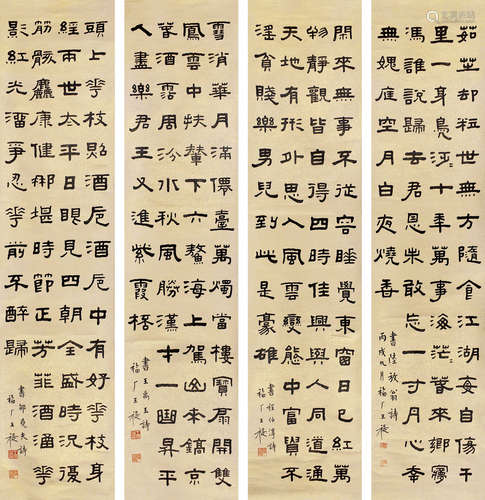 茹芝却粒世無方隨食江湖每自傷千
里一身鳧泛〻十年萬事海茫〻春來鄉夢
馮誰說歸去君恩未敢忘一寸丹心幸
無媿庭空月白夜燒香
書陸放翁詩
丙戌九月福厂王禔
閑來無事不從容睡覺東窗日已紅萬
物靜觀皆自得四時佳興與人同道通
天地有形外思入風雲變態中富貴不
淫貧賤樂男兒到此是豪雄
書程伯淳詩
福厂王禔
雪消華月滿僊臺萬燭當樓寶扇開雙
鳳雲中扶輦下六鰲海上駕山來鎬京
春酒霑周汾水秋風陋漢才一曲昇平
人盡樂君王又進紫霞桮
書王禹玉詩
福厂王禔
頭上花枝照酒卮酒卮中有好花枝身
經兩世太平日眼見四朝全盛時況復
筋骸麤康健那堪時節正芳菲酒涵花
影紅光溜爭忍花前不醉歸
書邵堯夫詩
福厂王禔